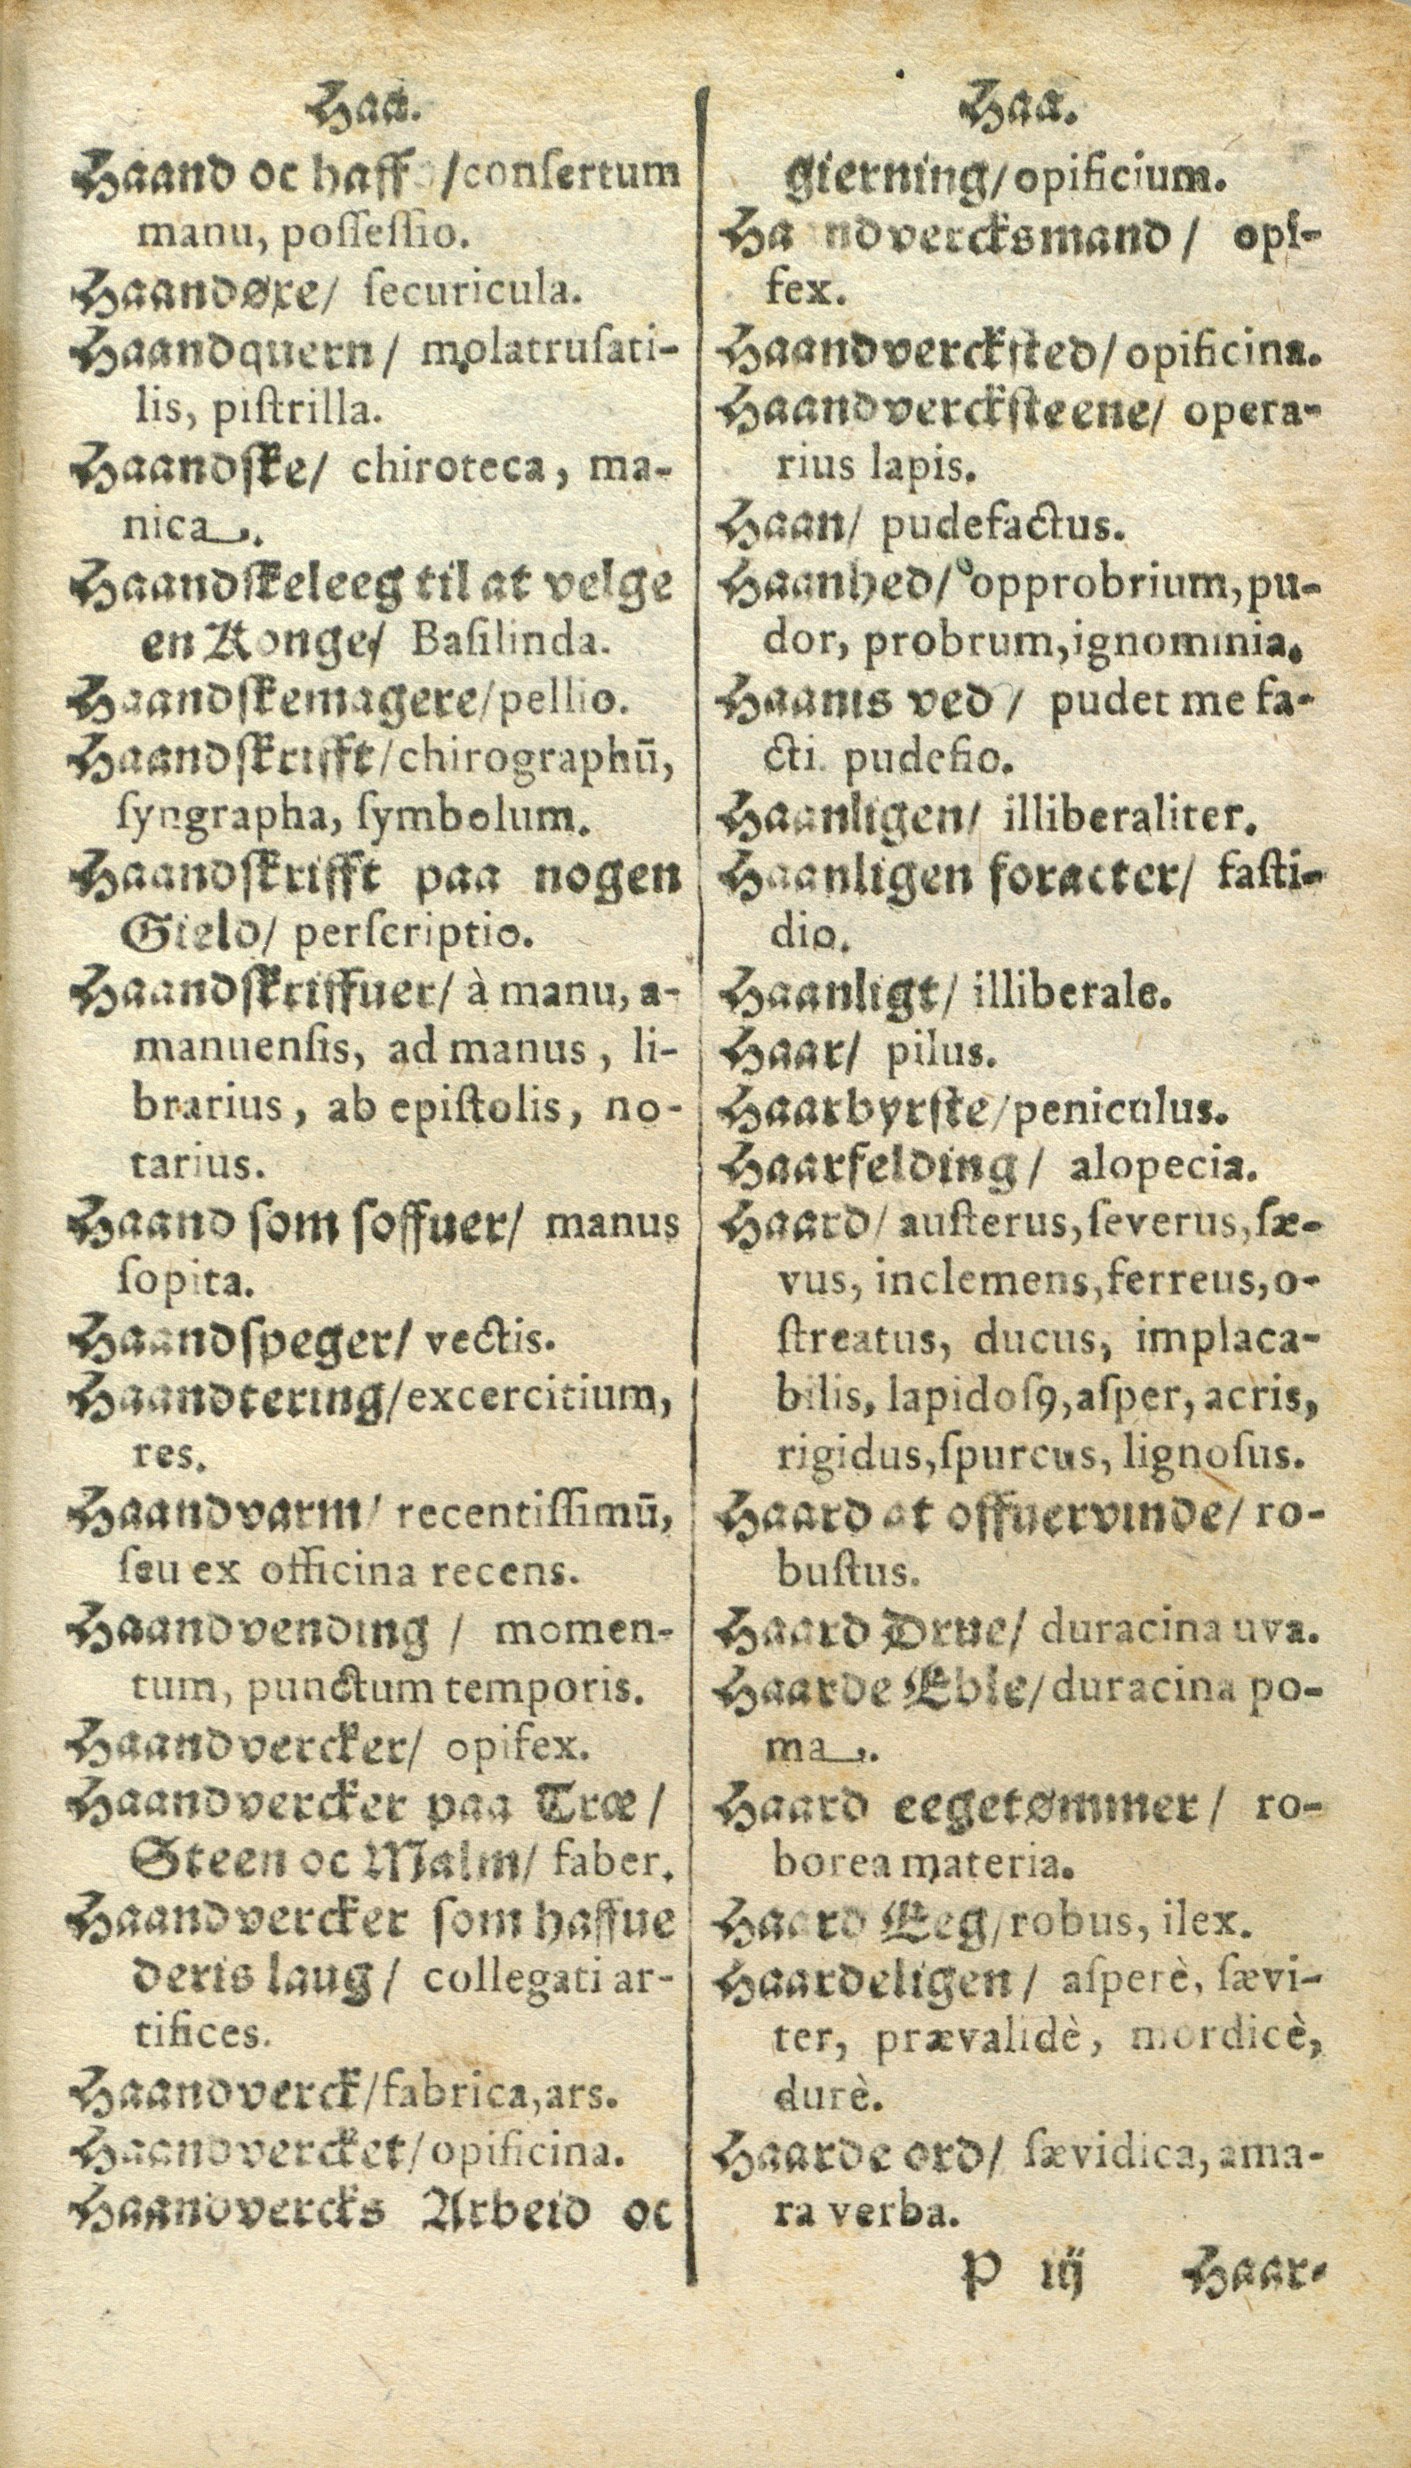 Haa.
Haand oc haff /conſertum
manu, poſſeſſio.
Haandøxe/ ſecuricula.
Haandquern/ molatruſati-
lis, piſtrilla.
Haandſke/ chiroteca, ma-
nica.
Haandſkeleeg til at velge
en Konge/ Baſilinda.
Haandſkemagere/pellio.
Haandſkrifft/chirographū,
ſyngrapha, ſymbolum.
Haandſkrifft paa nogen
Gield/ perſcriptio.
Haandſkriffuer/ à manu, a-
manuenſis, ad manus, li-
brarius, ab epiſtolis, no-
tarius.
Haand ſom ſoffuer/ manus
ſopita.
Haandſpeger/ vectis.
Haandtering/excercitium,
res.
Haandvarm/ recentiſſimū,
ſeu ex officina recens.
Haandvending / momen-
tum, punctum temporis.
Haandvercker/ opifex.
Haandvercker paa Træ/
Steen oc Malm/ faber.
Haandvercker ſom haffue
deris laug/ collegati ar-
tifices.
Haandverck/fabrica,ars.
Haandvercket/opificina.
Haandvercks Arbeid oc
Haa.
gierning/opificium.
Ha ndvercksmand/ opi-
fex.
Haandverckſted/opificina.
Haandverckſteene/ opera-
rius lapis.
Haan/ pudefactus.
Haanhed/ opprobrium,pu-
dor, probrum,ignominia.
Haanis ved/ pudet me fa-
cti. pudefio.
Haanligen/ illiberaliter.
Haanligen foracter/ faſti-
dio.
Haanligt/ illiberale.
Haar/ pilus.
Haarbyrſte/peniculus.
Haarfelding/ alopecia.
Haard/ auſterus,ſeverus,ſæ-
vus, inclemens,ferreus,o-
ſtreatus, ducus, implaca-
bilis, lapidoſꝯ,aſper, acris,
rigidus,ſpurcus, lignoſus.
Haard at offuervinde/ ro-
buſtus.
Haard Drue/ duracina uva.
Haarde Eble/duracina po-
ma.
Haard eegetømmer/ ro-
borea materia.
Haard Eeg/robus, ilex.
Haardeligen/ aſperè, ſævi-
ter, prævalidè, mordicè,
durè.
Haarde ord/ ſævidica, ama-
ra verba.
P iij Haar-